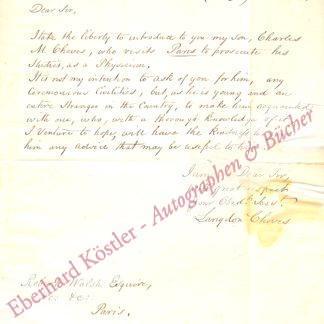 Dear Sir,
I take the liberty to introduce to you my son, Charles
M. Cheves, who visits Paris to prosecute his
Studies, as a Physician.
It is not my intention to ask of you for him, any
Ceremonious Civilities, but, as he is young and an
entire Stranger in the Country, to make him acquainted
with one, who, with a thorough Knowledge of it,
I Venture to hope, will have the Kindness to
him any advice that may be useful to him.
I am Dear Sir,
great respect
Your Obdt. Servt.
Langdon Cheves
Walsh Esquire,
Paris.
Eberhard Köstler - Autographen & Bücher